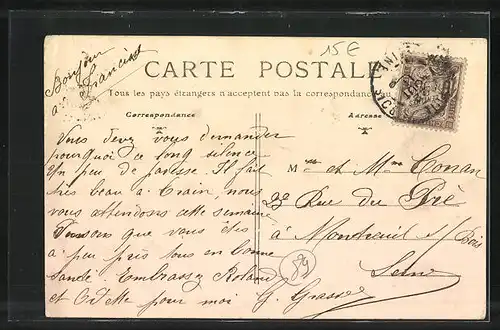 15E
Bonjour
à Francine
CARTE POSTALE
Tous les pays étrangers n'acceptent pas la correspondance au
Correspondance
Adresse
Vous devez vous demander
pourquoi ce long silence
Un peu de paresse. Il fait
très beau à
nous
vous attendons cette semaine
que vous êtes
à peu près tous en bonne
Santé. Embrassez Roland
et
pour moi
G.
M et Mme Conan
Rue du Pré
à Montreuil s/ Bois
Seine
59